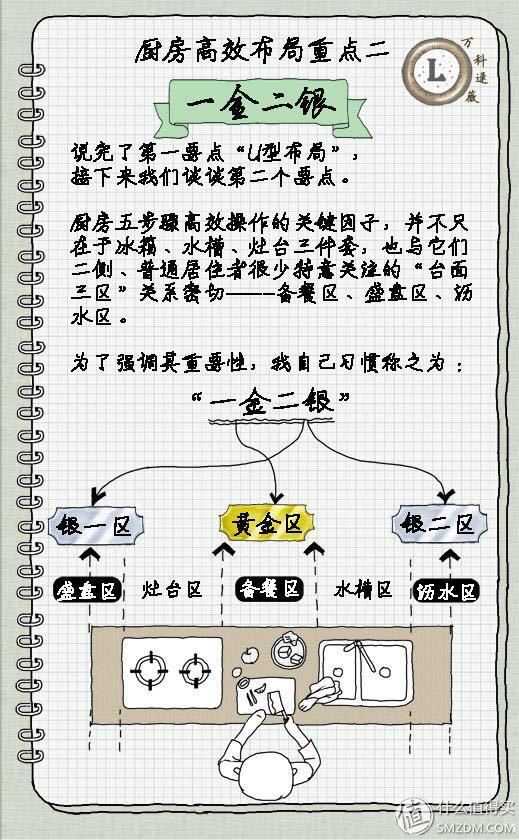 厨房高效布局重点二
万科连薇
L
一金二银
说完了第一要点“U型布局”，
接下来我们谈谈第二个要点。
厨房五步骤高效操作的关键因子，并不只
在于冰箱、水槽、灶台三件套，也与它们
二侧、普通居住者很少特意关注的“台面
三区”关系密切——备餐区、盛盘区、沥
水区。
为了强调其重要性，我自己习惯称之为：
“一金二银”
银一区 黄金区 银二区
盛盘区 灶台区 备餐区 水槽区 沥水区
值 什么值得买
SMZDM.COM